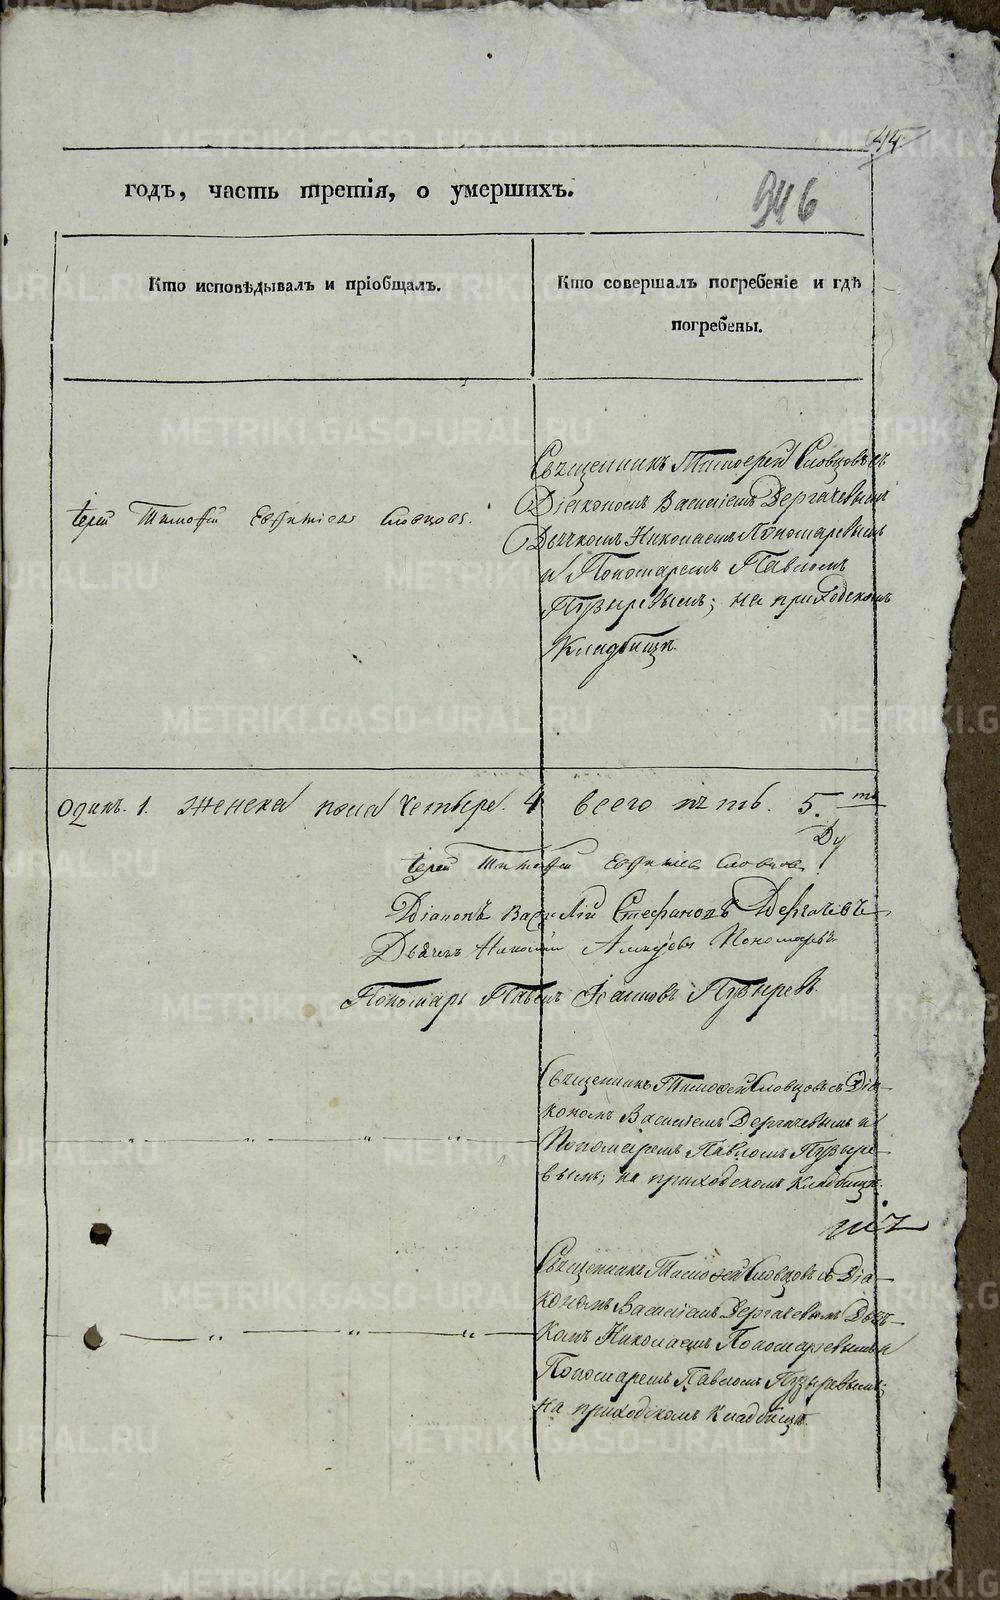 44
годъ, часть третія, о умершихъ.
946
Кто исповѣдывалъ и пріобщалъ.
Кто совершалъ погребеніе и гдѣ
погребены.
Іерей Тимофей Евфимiевъ Словцовъ.
Священникъ Тимофей Словцовъ съ
Діакономъ Василіемъ Дергачевымъ
Дьячкомъ Николаемъ Пономаревымъ
и Пономаремъ Павломъ
Пузыревымъ; на приходскомъ
Кладбищѣ.
Одинъ. 1. женска пола четыре. 4 всего 5.
Іерей Тимофей Евфимiевъ Словцовъ
Діаконъ Василій Стефановъ Дергачевъ
Дьячекъ Николай Пономаревъ
Пономарь Павелъ Іоанновъ Пузыревъ.
Священникъ Тимофей Словцовъ съ Діа-
кономъ Василіемъ Дергачевымъ и
Пономаремъ Павломъ Пузыре-
вымъ; на приходскомъ кладбищѣ.
Священникъ Тимофей Словцовъ съ Діа-
кономъ Василіемъ Дергачевымъ Дьяч-
комъ Николаемъ Пономаревымъ и
Пономаремъ Павломъ Пузыревымъ;
на приходскомъ кладбищѣ.
METRIKI.GASO-URAL.RU